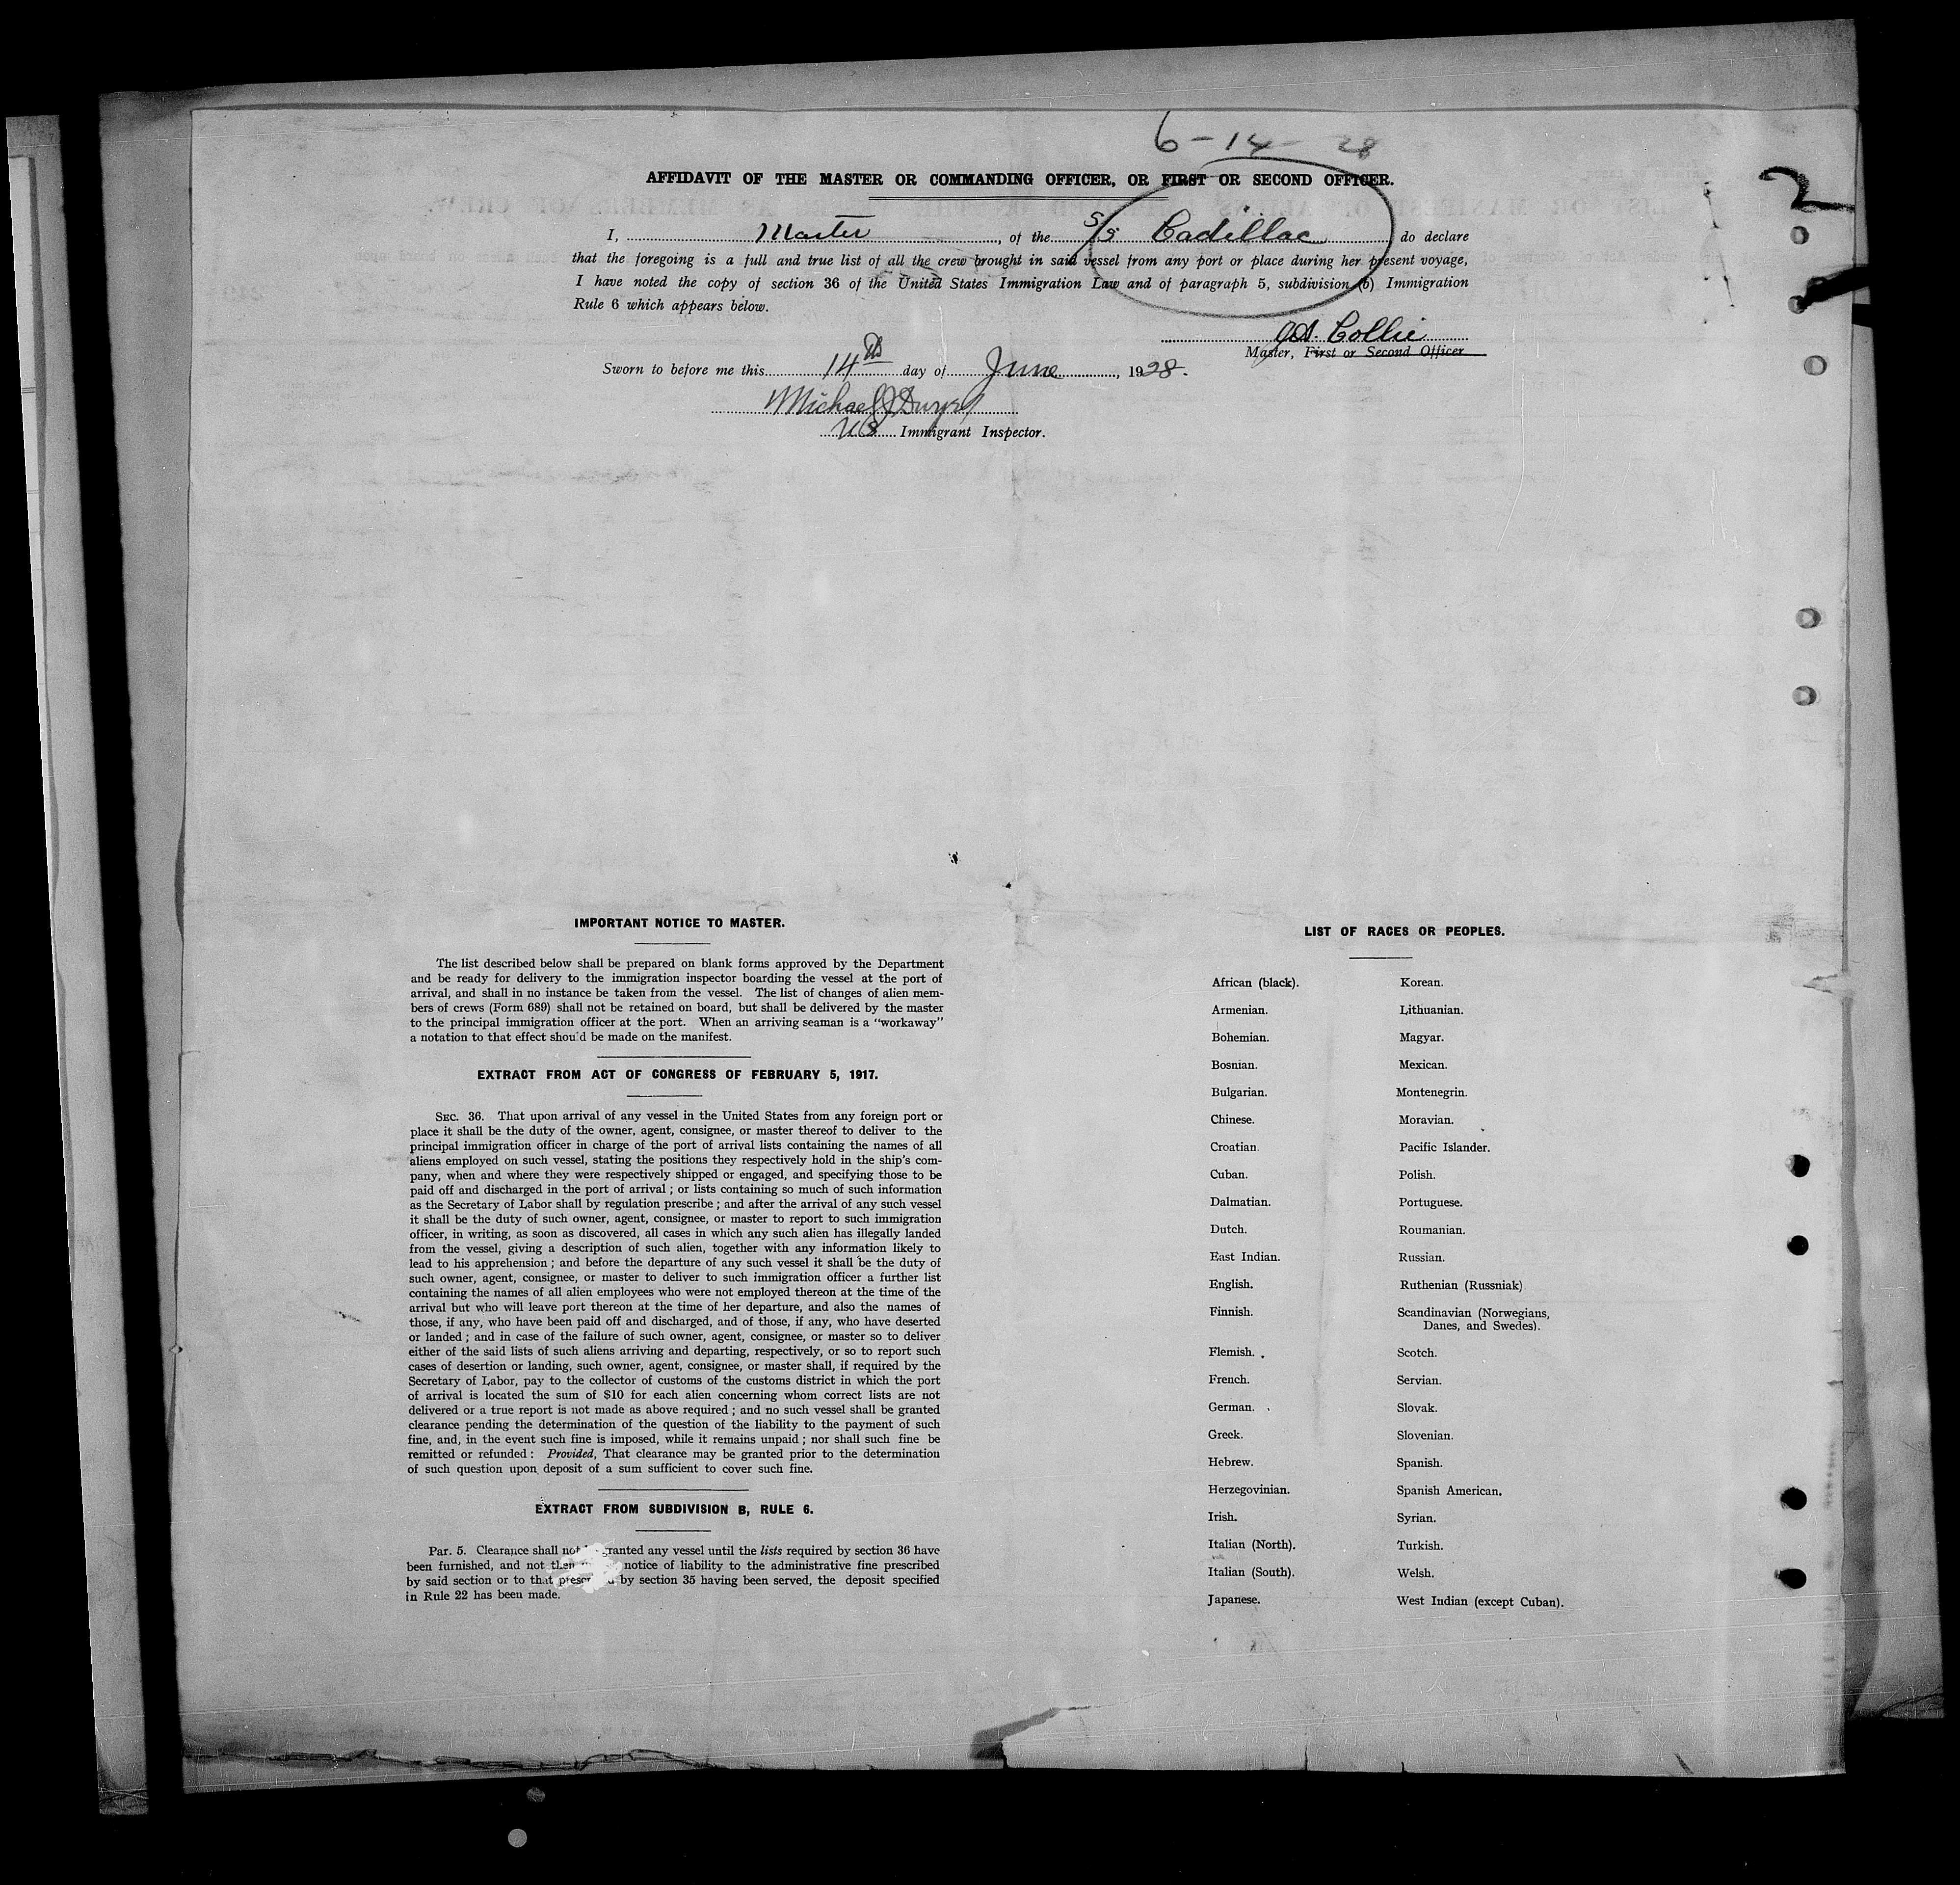 6 - 14 - 28
2
AFFIDAVIT OF THE MASTER OR COMMANDING OFFICER, OR FIRST OR SECOND OFFICER.
I, Master, of the S/S Cadillac do declare
that the foregoing is a full and true list of all the crew brought in said vessel from any port or place during her present voyage,
I have noted the copy of section 36 of the United States Immigration Law and of paragraph 5, subdivision (b) Immigration
Rule 6 which appears below.
Collie
Master, First or Second Officer
Sworn to before me this 14th day of June, 1928.
Michael J Dwyer
US Immigrant Inspector.
IMPORTANT NOTICE TO MASTER.
The list described below shall be prepared on blank forms approved by the Department
and be ready for delivery to the immigration inspector boarding the vessel at the port of
arrival, and shall in no instance be taken from the vessel. The list of changes of alien mem-
bers of crews (Form 689) shall not be retained on board, but shall be delivered by the master
to the principal immigration officer at the port. When an arriving seaman is a "workaway"
a notation to that effect should be made on the manifest.
EXTRACT FROM ACT OF CONGRESS OF FEBRUARY 5, 1917.
SEC. 36. That upon arrival of any vessel in the United States from any foreign port or
place it shall be the duty of the owner, agent, consignee, or master thereof to deliver to the
principal immigration officer in charge of the port of arrival lists containing the names of all
aliens employed on such vessel, stating the positions they respectively hold in the ship's com-
pany, when and where they were respectively shipped or engaged, and specifying those to be
paid off and discharged in the port of arrival; or lists containing so much of such information
as the Secretary of Labor shall by regulation prescribe; and after the arrival of any such vessel
it shall be the duty of such owner, agent, consignee, or master to report to such immigration
officer, in writing, as soon as discovered, all cases in which any such alien has illegally landed
from the vessel, giving a description of such alien, together with any information likely to
lead to his apprehension; and before the departure of any such vessel it shall be the duty of
such owner, agent, consignee, or master to deliver to such immigration officer a further list
containing the names of all alien employees who were not employed thereon at the time of the
arrival but who will leave port thereon at the time of her departure, and also the names of
those, if any, who have been paid off and discharged, and of those, if any, who have deserted
or landed; and in case of the failure of such owner, agent, consignee, or master so to deliver
either of the said lists of such aliens arriving and departing, respectively, or so to report such
cases of desertion or landing, such owner, agent, consignee, or master shall, if required by the
Secretary of Labor, pay to the collector of customs of the customs district in which the port
of arrival is located the sum of $10 for each alien concerning whom correct lists are not
delivered or a true report is not made as above required; and no such vessel shall be granted
clearance pending the determination of the question of the liability to the payment of such
fine, and, in the event such fine is imposed, while it remains unpaid; nor shall such fine be
remitted or refunded: Provided, That clearance may be granted prior to the determination
of such question upon deposit of a sum sufficient to cover such fine.
EXTRACT FROM SUBDIVISION B, RULE 6.
Par. 5. Clearance shall not granted any vessel until the lists required by section 36 have
been furnished, and not then notice of liability to the administrative fine prescribed
by said section or to that by section 35 having been served, the deposit specified
in Rule 22 has been made.
LIST OF RACES OR PEOPLES.
African (black). Korean.
Armenian. Lithuanian.
Bohemian. Magyar.
Bosnian. Mexican.
Bulgarian. Montenegrin.
Chinese. Moravian.
Croatian. Pacific Islander.
Cuban. Polish.
Dalmatian. Portuguese.
Dutch. Roumanian.
East Indian. Russian.
English. Ruthenian (Russniak)
Finnish. Scandinavian (Norwegians,
Danes, and Swedes).
Flemish. Scotch.
French. Servian.
German. Slovak.
Greek. Slovenian.
Hebrew. Spanish.
Herzegovinian. Spanish American.
Irish. Syrian.
Italian (North). Turkish.
Italian (South). Welsh.
Japanese. West Indian (except Cuban).